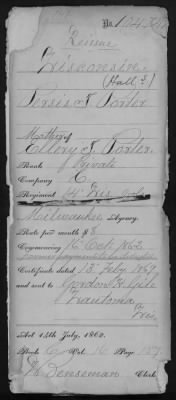 No. 104.
Wisconsin.
Persis F. Porter
Mother of
Ellery J. Porter.
Rank Private
Company C.
Regiment 14" Wis Vols
Milwaukee Agency.
Rate per month $8
Commencing 16 Oct 1862
Certificate dated 13 Feby 1867
and sent to Gordon H. Gile
Wautoma
Wis
Act 14th July, 1862.
Book C Vol. 16 Page 157
Clerk